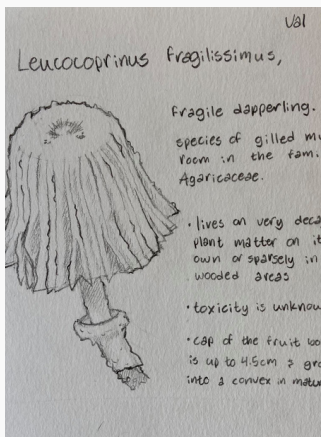 Val
Leucocoprinus fragilissimus,
Fragile dapperling.
species of gilled
room in the
Agaricaceae.
• lives on very
plant matter on
own or sparsely in
wooded areas
• toxicity is
• cap of the fruit
is up to 4.5cm &
into a convex in